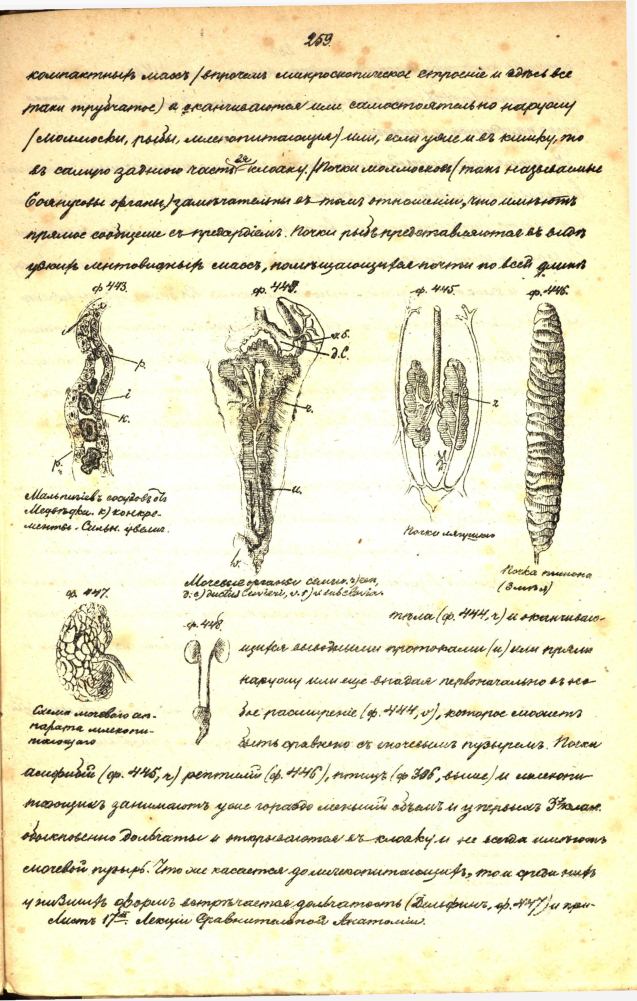 259.
компактныхъ массъ (впрочемъ микроскопическое строеніе и здѣсь все
таки трубчатое) и оканчиваются или самостоятельно наружу
(моллюски, рыбы, млекопитающія) или, если уже и въ кишку, то
въ самую заднюю часть ея клоаку. Почки моллюсковъ (такъ называемые
Боянусовы органы) замѣчательны въ томъ отношеніи, что имѣютъ
прямое сообщеніе съ предсердіемъ. Почки рыбъ представляются въ видѣ
узкихъ лентовидныхъ массъ, помѣщающихся почти по всей длинѣ
ф. 443.
ф. 444.
ф. 445.
ф. 446.
p.
i
к.
p.
а.б.
д.С.
r.
u.
v.
r
Мальпигіевъ сосудъ
Медвѣдки. к) конкре-
менты. Сильн. увелич.
Мочевые органы r) рен,
д.с) ductus Cuvieri,
Почка лягушки
Почка питона
(Змѣя)
ф. 447.
ф. 448
Схема мочеваго ап-
парата млекопи-
тающаго
тѣла (ф. 444, r) и оканчиваю-
щихся выводными протоками (u) или прямо
наружу или еще впадая первоначально въ осо-
бое расширеніе (ф. 444, v), которое можетъ
быть сравнено съ мочевымъ пузыремъ. Почки
амфибій (ф. 445, r) рептилій (ф. 446), птицъ (ф 386, выше) и млекопи-
тающихъ занимаютъ уже гораздо меньшій объемъ и у первыхъ 3хъ клас.
обыкновенно дольчаты и открываются въ клоаку и не всегда имѣютъ
мочевой пузырь. Что же касается до млекопитающихъ, то и среди нихъ
у низшихъ формъ встрѣчается дольчатость (Дельфинъ, ф. 447) и при-
Листъ 17й. Лекціи Сравнительной Анатоміи.